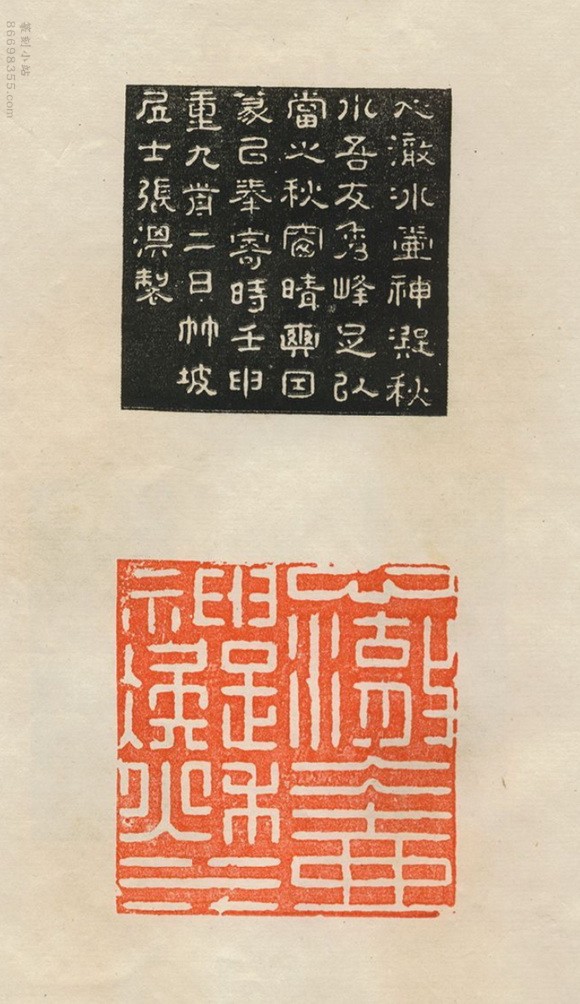 篆刻小站
86698355.com
心澈冰壺神凝秋
水吾友秀峰足以
當之秋窗晴興因
篆已奉寄時壬申
重九前二日竹坡
居士張製
心澈冰壺
神凝秋水